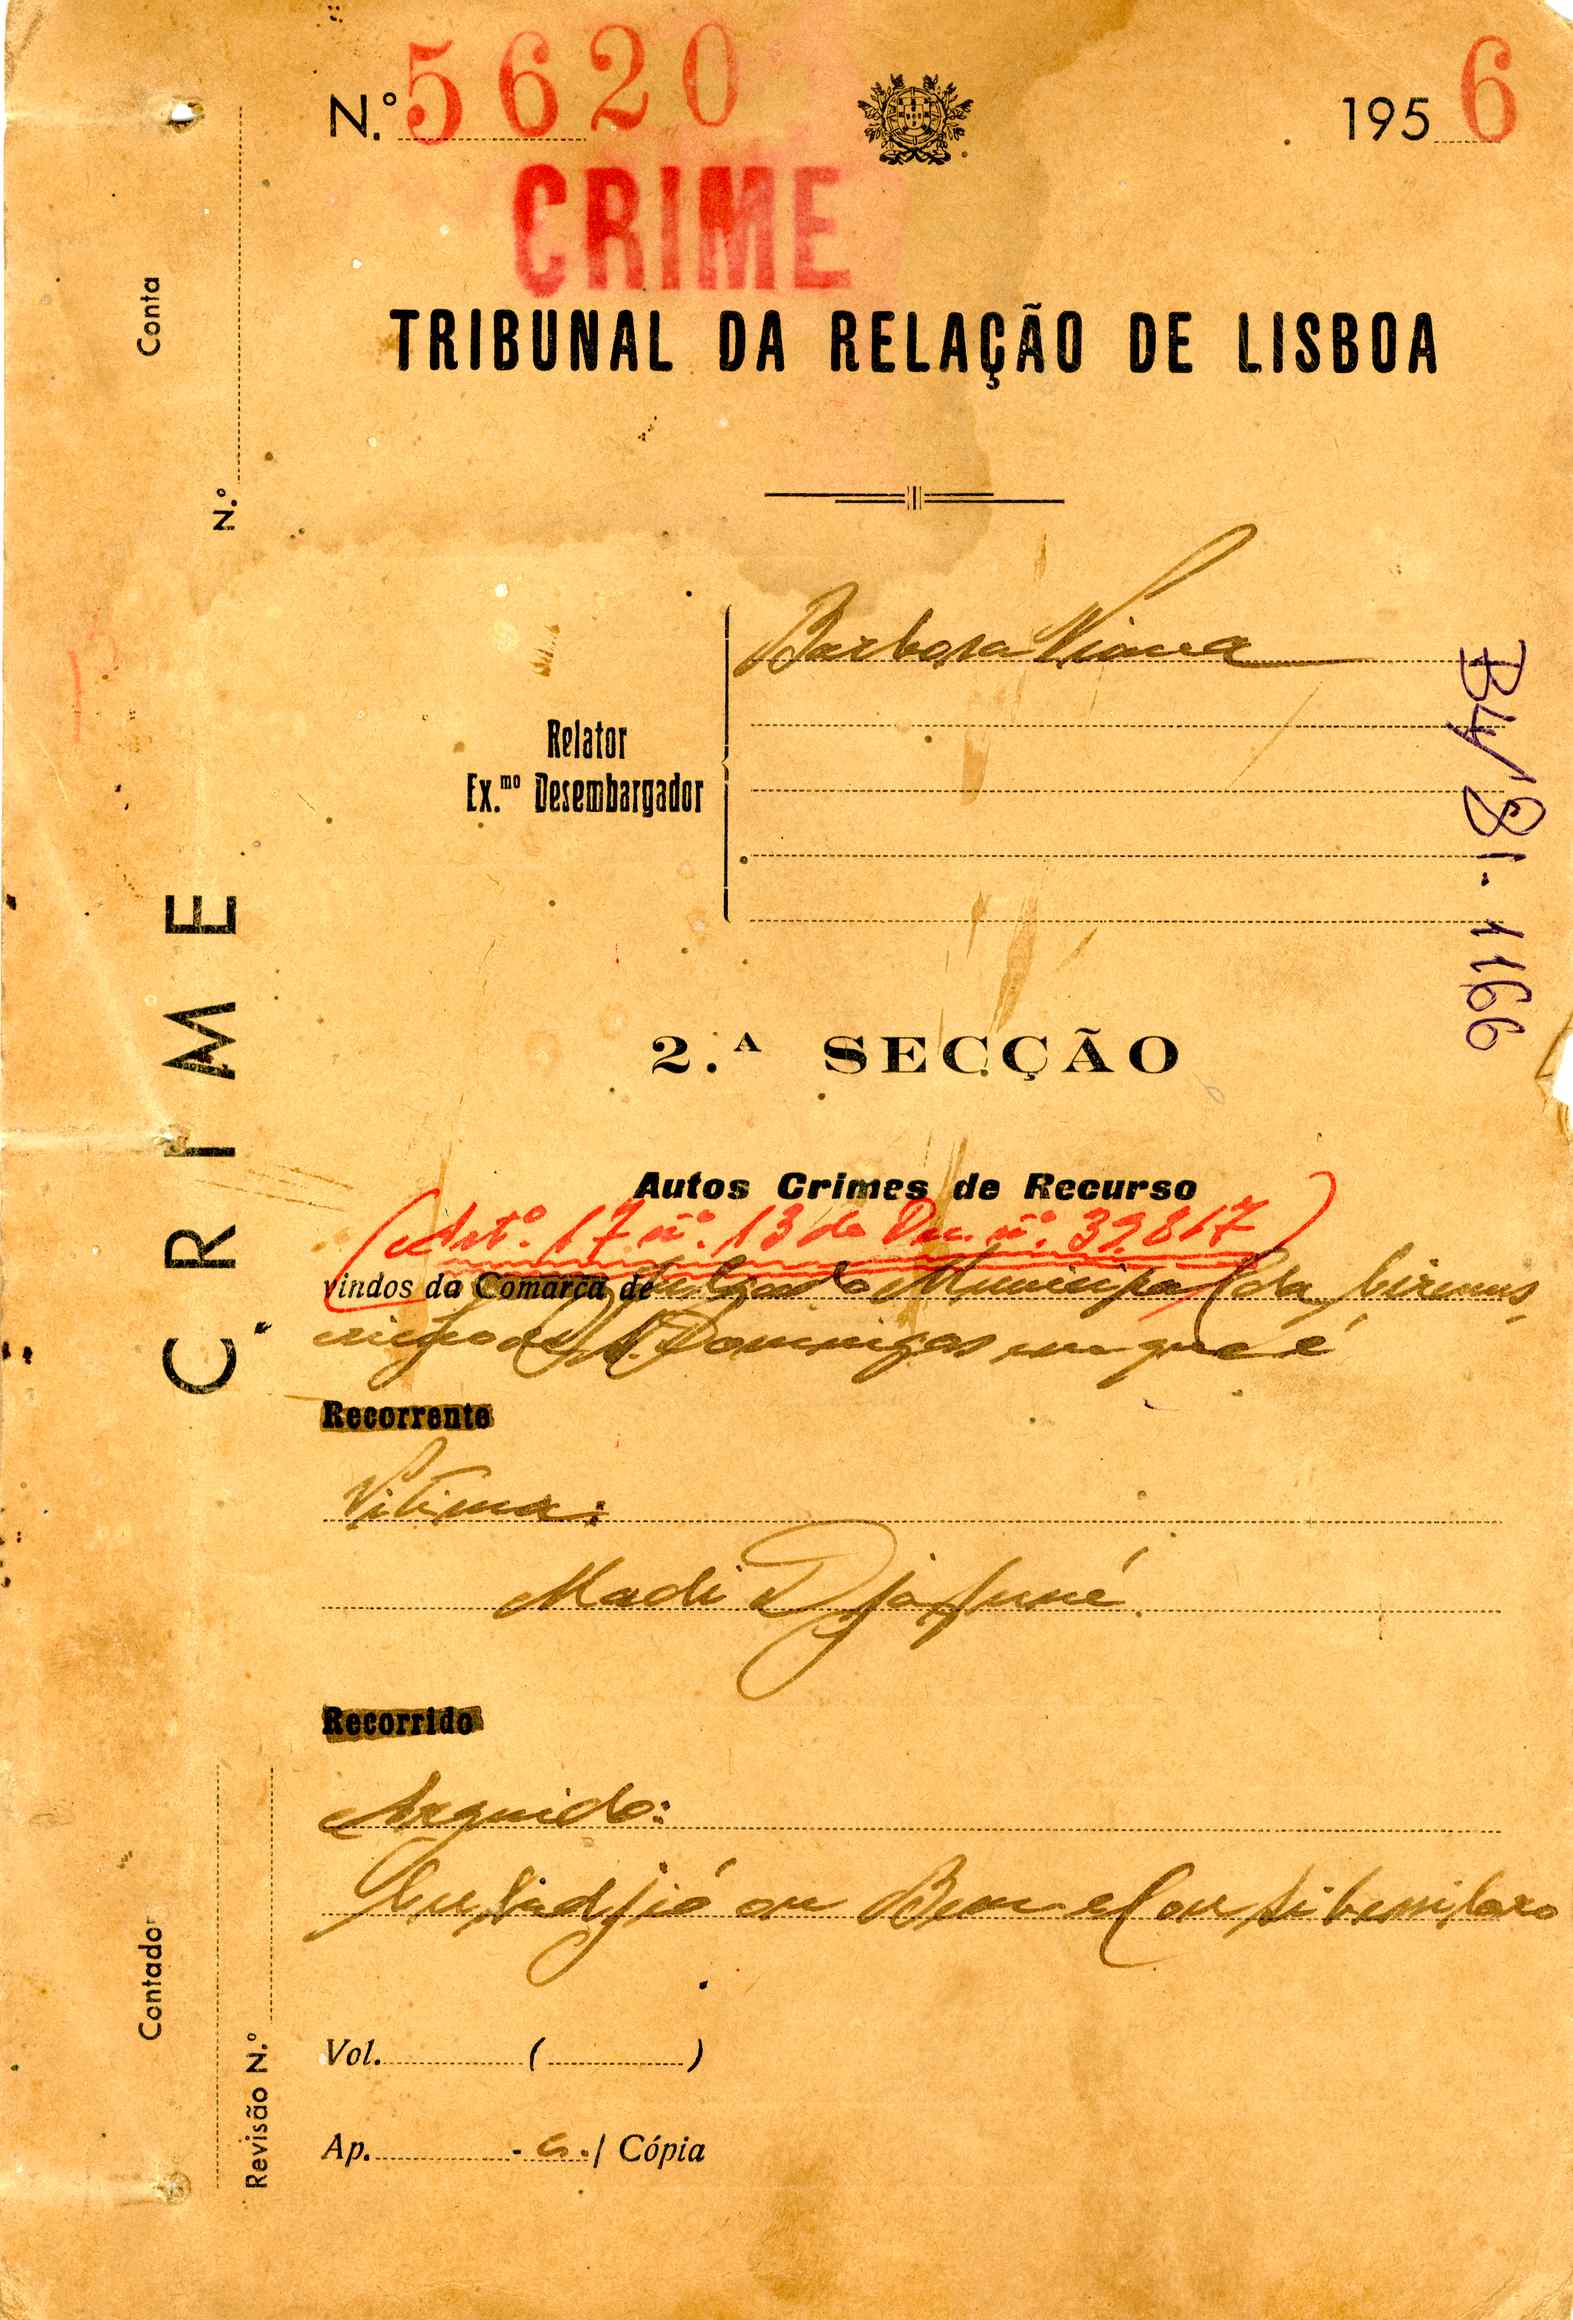 N.º 5620
195 6
CRIME
TRIBUNAL DA RELAÇÃO DE LISBOA
Conta
N.º
Barbosa Viana
Relator
Ex.mo Desembargador
2.ª SECÇÃO
CRIME
Autos Crimes de Recurso
(Artº. 17 nº. 13 do Dec. nº. 39.817)
vindos da Comarca de Julgado Municipal da Circuns,
crição de S. Domingos em que é
Recorrente
Vítima:
Madi Djafuné
Recorrido
Arguido:
ou
Contador
Revisão N.º
Vol. ( )
Ap. - / Cópia